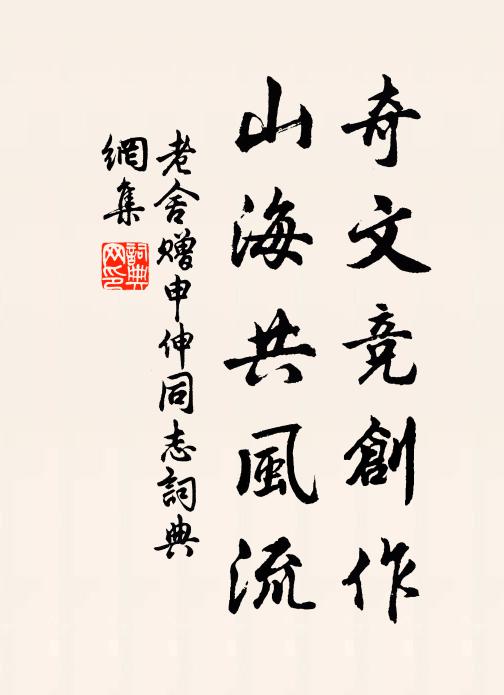 奇文竞創作
山海共風流
老舍赠申伸同志詞典
網集
詞典
网印